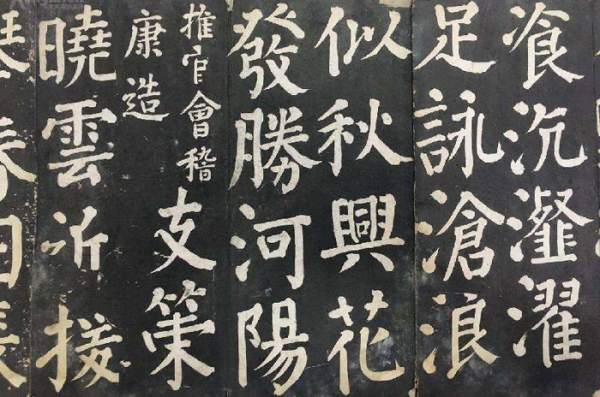 飡沆瀣濯
足詠滄浪
似秋興花
發勝河陽
推官會稽
康造
支策
曉雲近援